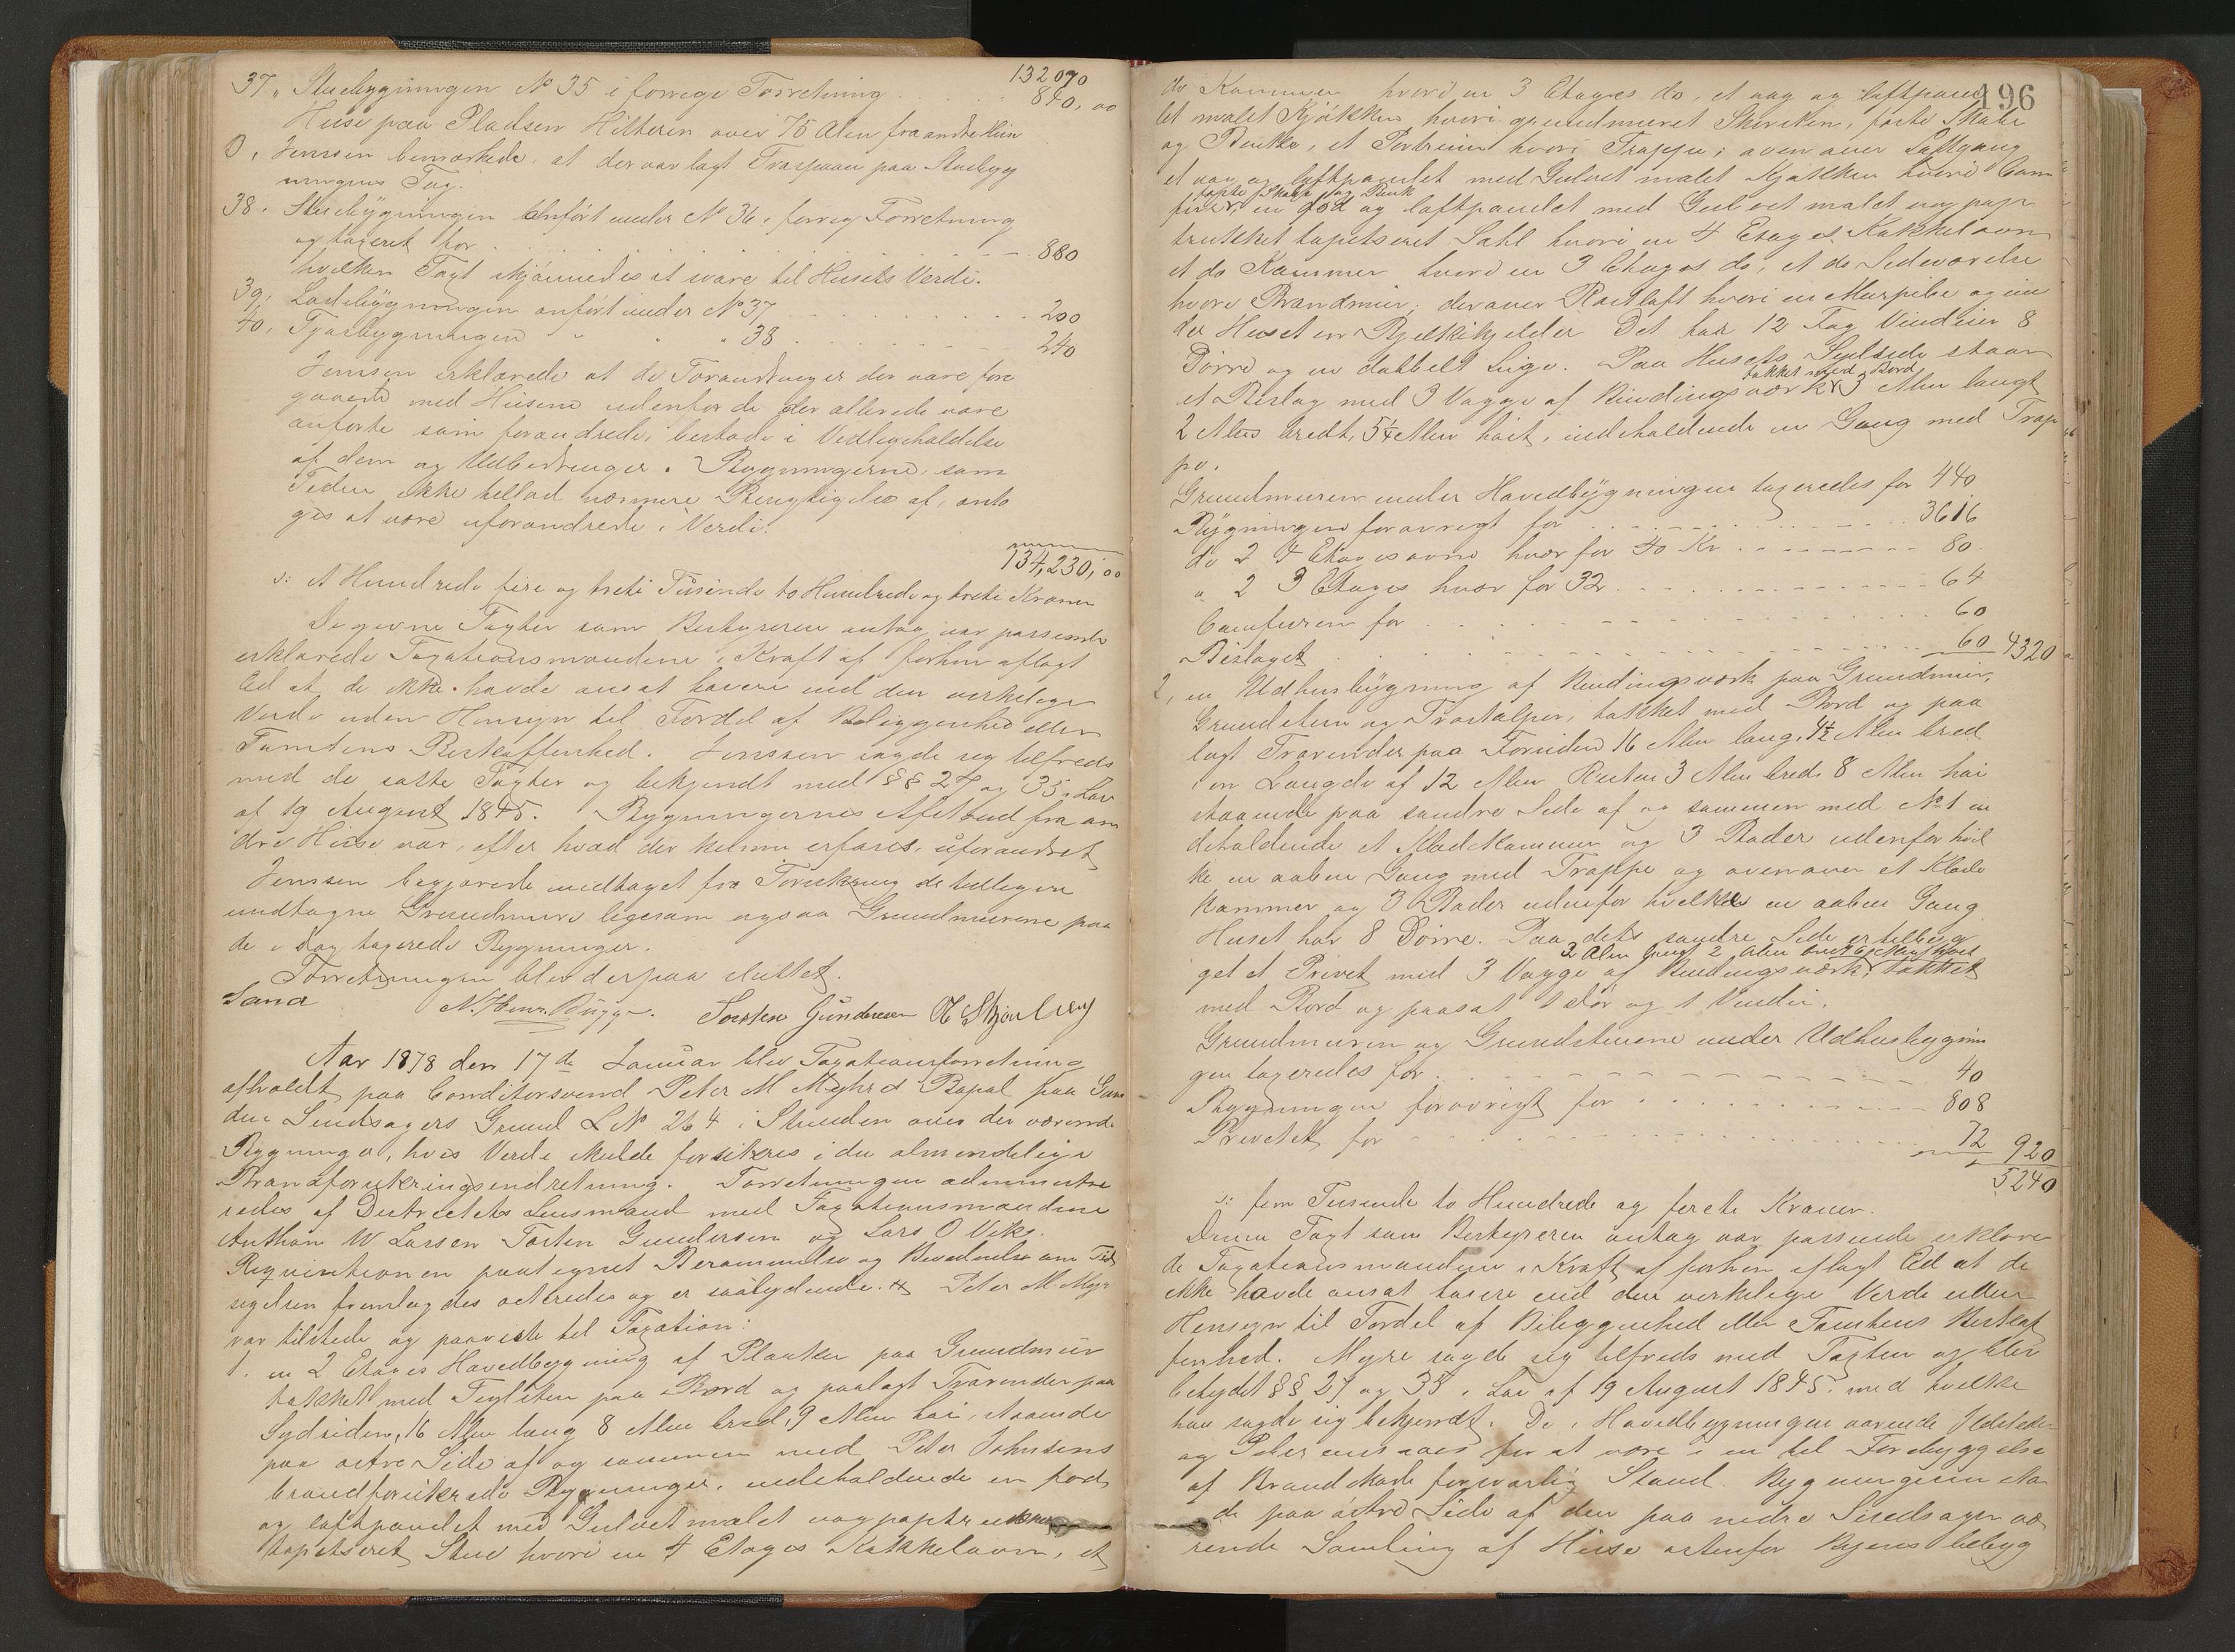 132070
37, Stuebygningen № 35 i forrige Forretning . . . . . . 840,00
Huse paa Pladsen Hilteren over 75 Alen fra andre Huse
O. Jenssen bemærkede, at der var lagt Traspaan paa Stuebyg
ningens Tag.
38. Stuebygningen anført under № 36 i forrige Forretning
og taxeret for . . . . . . . . 880
hvilken Taxt skjønnedes at svare til Husets Verdi.
39, Ladebygningen anført under № 37 . . . . . . . . 200
40, Fjøsbygningen " " " 38 . . . . . . . 240
Jenssen erklærede at de Forandringer der vare fore
gaaede med Husene udenfor de der allerede vare
anførte som forandrede, bestode i Vedligeholdelse
af dem og Udbedringer. Bygningerne, som
Tiden ikke tillod nærmere Besigtigelse af, anto
ges at være uforandrede i Verdi.
134,230,00
s: et Hundrede fire og treti Tusinde to Hundrede og treti Kroner
De givne Taxter som Bestyreren antog var passende
erklærede Taxationsmændene i Kraft af forhen aflagt
Ed at de ikke havde ansat høiere end den virkelige
Verdi uden Hensyn til Fordel af Beliggenhed eller
Tomtens Beskaffenhed. Jenssen sagde sig tilfreds
med de satte Taxter og bekjendt med §§ 27 og 35 i Lov
af 19 August 1845. Bygningernes Afstand fra an
dre Huse var, efter hvad der kunne erfares, uforandret
Jenssen begjærede undtaget fra Forsikring de tidligere
undtagne Grundmure ligesom ogsaa Grundmurene paa
de i Dag taxerede Bygninger.
Forretningen blev derpaa sluttet.
Sand N. Henr. Bugge. Torsten Gundersen
Aar 1878 den 17de Januar blev Taxationsforretning
afholdt paa Conditorsvend Peter M Myhre Bopæl paa Gun
der Sindsagers Grund L№ 264 i Stranden over der værende
Bygninger, hvis Verdi skulde forsikres i den almindelige
Brandforsikringsindretning. Forretningen administre
redes af Distrectets Lensmand med Taxationsmændene
Anthon W Larsen Torsten Gundersen og Lars O Vik.
Requisitionen paategnet Berammelse og Bevidnelse om Til
sigelsen fremlagdes acteredes og er saalydende: Peter M. Myr
var tilstede og paaviste til Taxation:
1. en 2 Etages Hovedbygning af Planker paa Grundmur
takket med Teglsten paa Bord og paalagt Travender paa
Sydsiden, 16 Alen lang 8 Alen bred, 9 Alen høi, staaende
paa østre Side af og sammen med Peter Johnsens
brandforsikrede Bygninger, indeholdende en god
og loftpanelet med Gulvet malet vægpaptrukken
tapetseret Stue hvori en 4 Etages Kakkelovn, et
196
do Kammer hvori en 3 Etages do, et væg og loftpane
let malet Kjøkken hvori grundmuret Skorsten, faste Skabe
og Bænke, et Forbrum hvori Trappe; oven over Loftgang
et væg og loftpanelet med Gulvet malet Kjøkken hvori Com
faste Skabe og Bænk
firer, en god og loftpanelet med Gulvet malet vægpap
trukket tapetseret Sahl hvori en 4 Etages Kakkelovn
et do Kammer hvori en 3 Etages do, et do Sideværelse
hvori Brandmur; derover Røstloft hvori en Murpibe og un
der Huset en Bjelkekjelder Det har 12 Fag Vinduer 8
Dørre og en dobbelt Luge. Paa Husets Sydside staar
takket med Bord
et Bislag med 3 Vægge af Bindingsværk 3 Alen langt
2 Alen bredt, 5¼ Alen høit, indeholdende en Gang med Trap
pe.
Grundmuren under Hovedbygningen taxeredes for 440
Bygningen forøvrigt for . . . . . . 3616
do 2 4 Etagesovne hver for 40 Kr . . . . . 80.
" 2 3 Etages hver for 32 . . . . . . 64
Comfuren for . . . . . . . 60
Bislaget . . . . . . . 60 4320
2, en Udhusbygning af Bindingsværk paa Grundmur,
Grundstene og Træstolper, takket med Bord og paa
lagt Travender paa Forsiden 16 Alen lang, 4½ Alen bred
i en Længde af 12 Alen Resten 3 Alen bred 8 Alen høi
staaende paa søndre Side af og sammen med №1 in
deholdende et Madkammer og 3 Boder udenfor hvil
ke en aaben Gang med Trappe og ovenover et Klæde
kammer og 3 Boder udenfor hvilke en aaben Gang
Huset har 8 Dørre. Paa dets søndre Side er tilbyg
2 Alen langt 2 Alen bredt
get et Privet med 3 Vægge af Bindingsværk takket
med Bord og paasat 1 Dør og 1 Vindu.
Grundmuren og Grundstenene under Udhusbygnin
gen taxeredes for . . . . . . 40
Bygningen forøvrigt for . . . . . 808
Privetet for . . . . . . 72 920
5240
s: fem Tusinde to Hundrede og forti Kroner.
Denne Taxt som Bestyreren antog var passende erklære
de Taxationsmændene i Kraft af forhen aflagt Ed at de
ikke havde ansat høiere end den virkelige Verdi uden
Hensyn til Fordel af Beliggenhed eller Tomtens Beskaf
fenhed. Myre sagde sig tilfreds med Taxten og blev
betydet §§ 27 og 35 i Lov af 19 August 1845 med hvilke
han sagde sig bekjendt. De i Hovedbygningen værende Ildsteder
og Piber ansaaes for at være i en til Forebyggelse
af Brandskade forsvarlig Stand. Bygningerne sto
de paa østre Side af den paa nedre Sindsager væ
rende Samling af Huse østenfor Byens bebyg